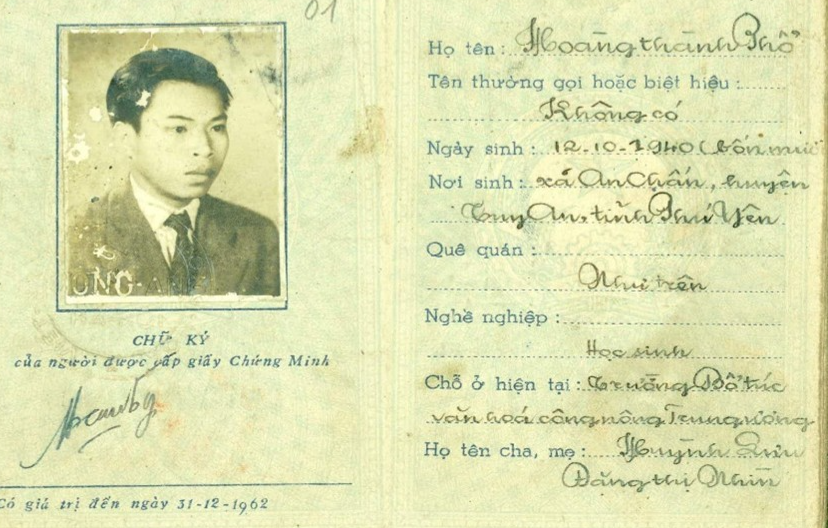 01
ONG-AN
CHỮ KÝ
của người được cấp giấy Chứng Minh
Có giá trị đến ngày 31-12-1962
Họ tên: Hoàng thành Phố
Tên thường gọi hoặc biệt hiệu:
Không có
Ngày sinh: 12-10-1940 (bốn mươi
Nơi sinh: xã An Chấn, huyện
Tuy An, tỉnh Phú Yên
Quê quán:
Như trên
Nghề nghiệp:
Học sinh
Chỗ ở hiện tại: Trường Bổ túc
văn hoá công nông Trung ương
Họ tên cha, mẹ: Huỳnh Lưu
Đặng thị Nhìn